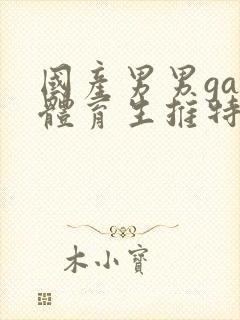 國產男男ga
體育生推特
木小寶